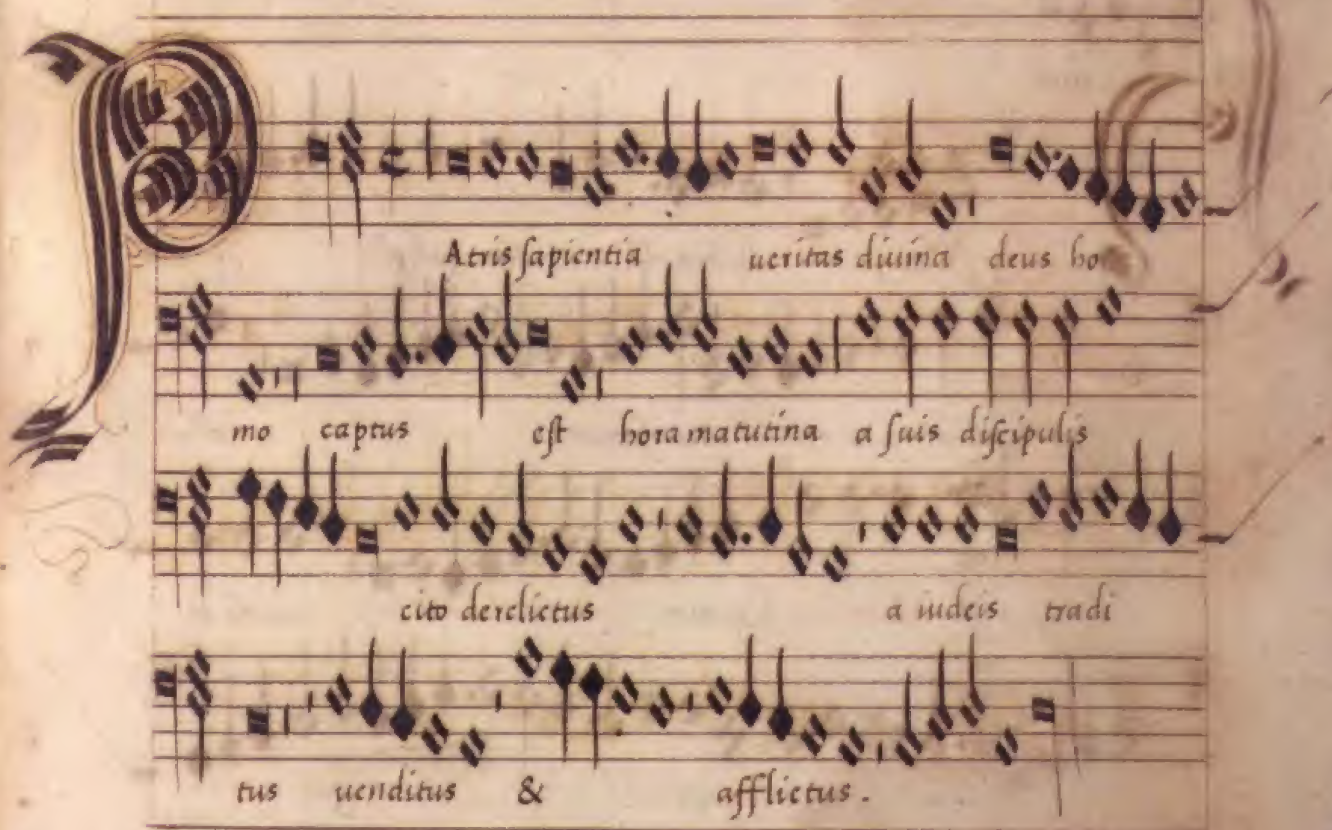 PAtris sapientia ueritas diuina deus ho
mo captus est hora matutina a suis discipulis
cito derelictus a iudeis tradi
tus uenditus & afflictus.